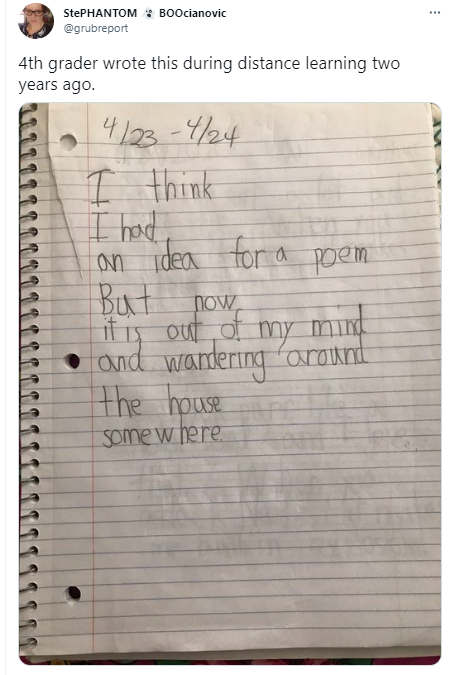 StePHANTOM 👻 BOOcianovic
@grubreport
4th grader wrote this during distance learning two
years ago.
4/23 - 4/24
I think
I had
an idea for a poem
But now
it is out of my mind
and wandering around
the house
somewhere.